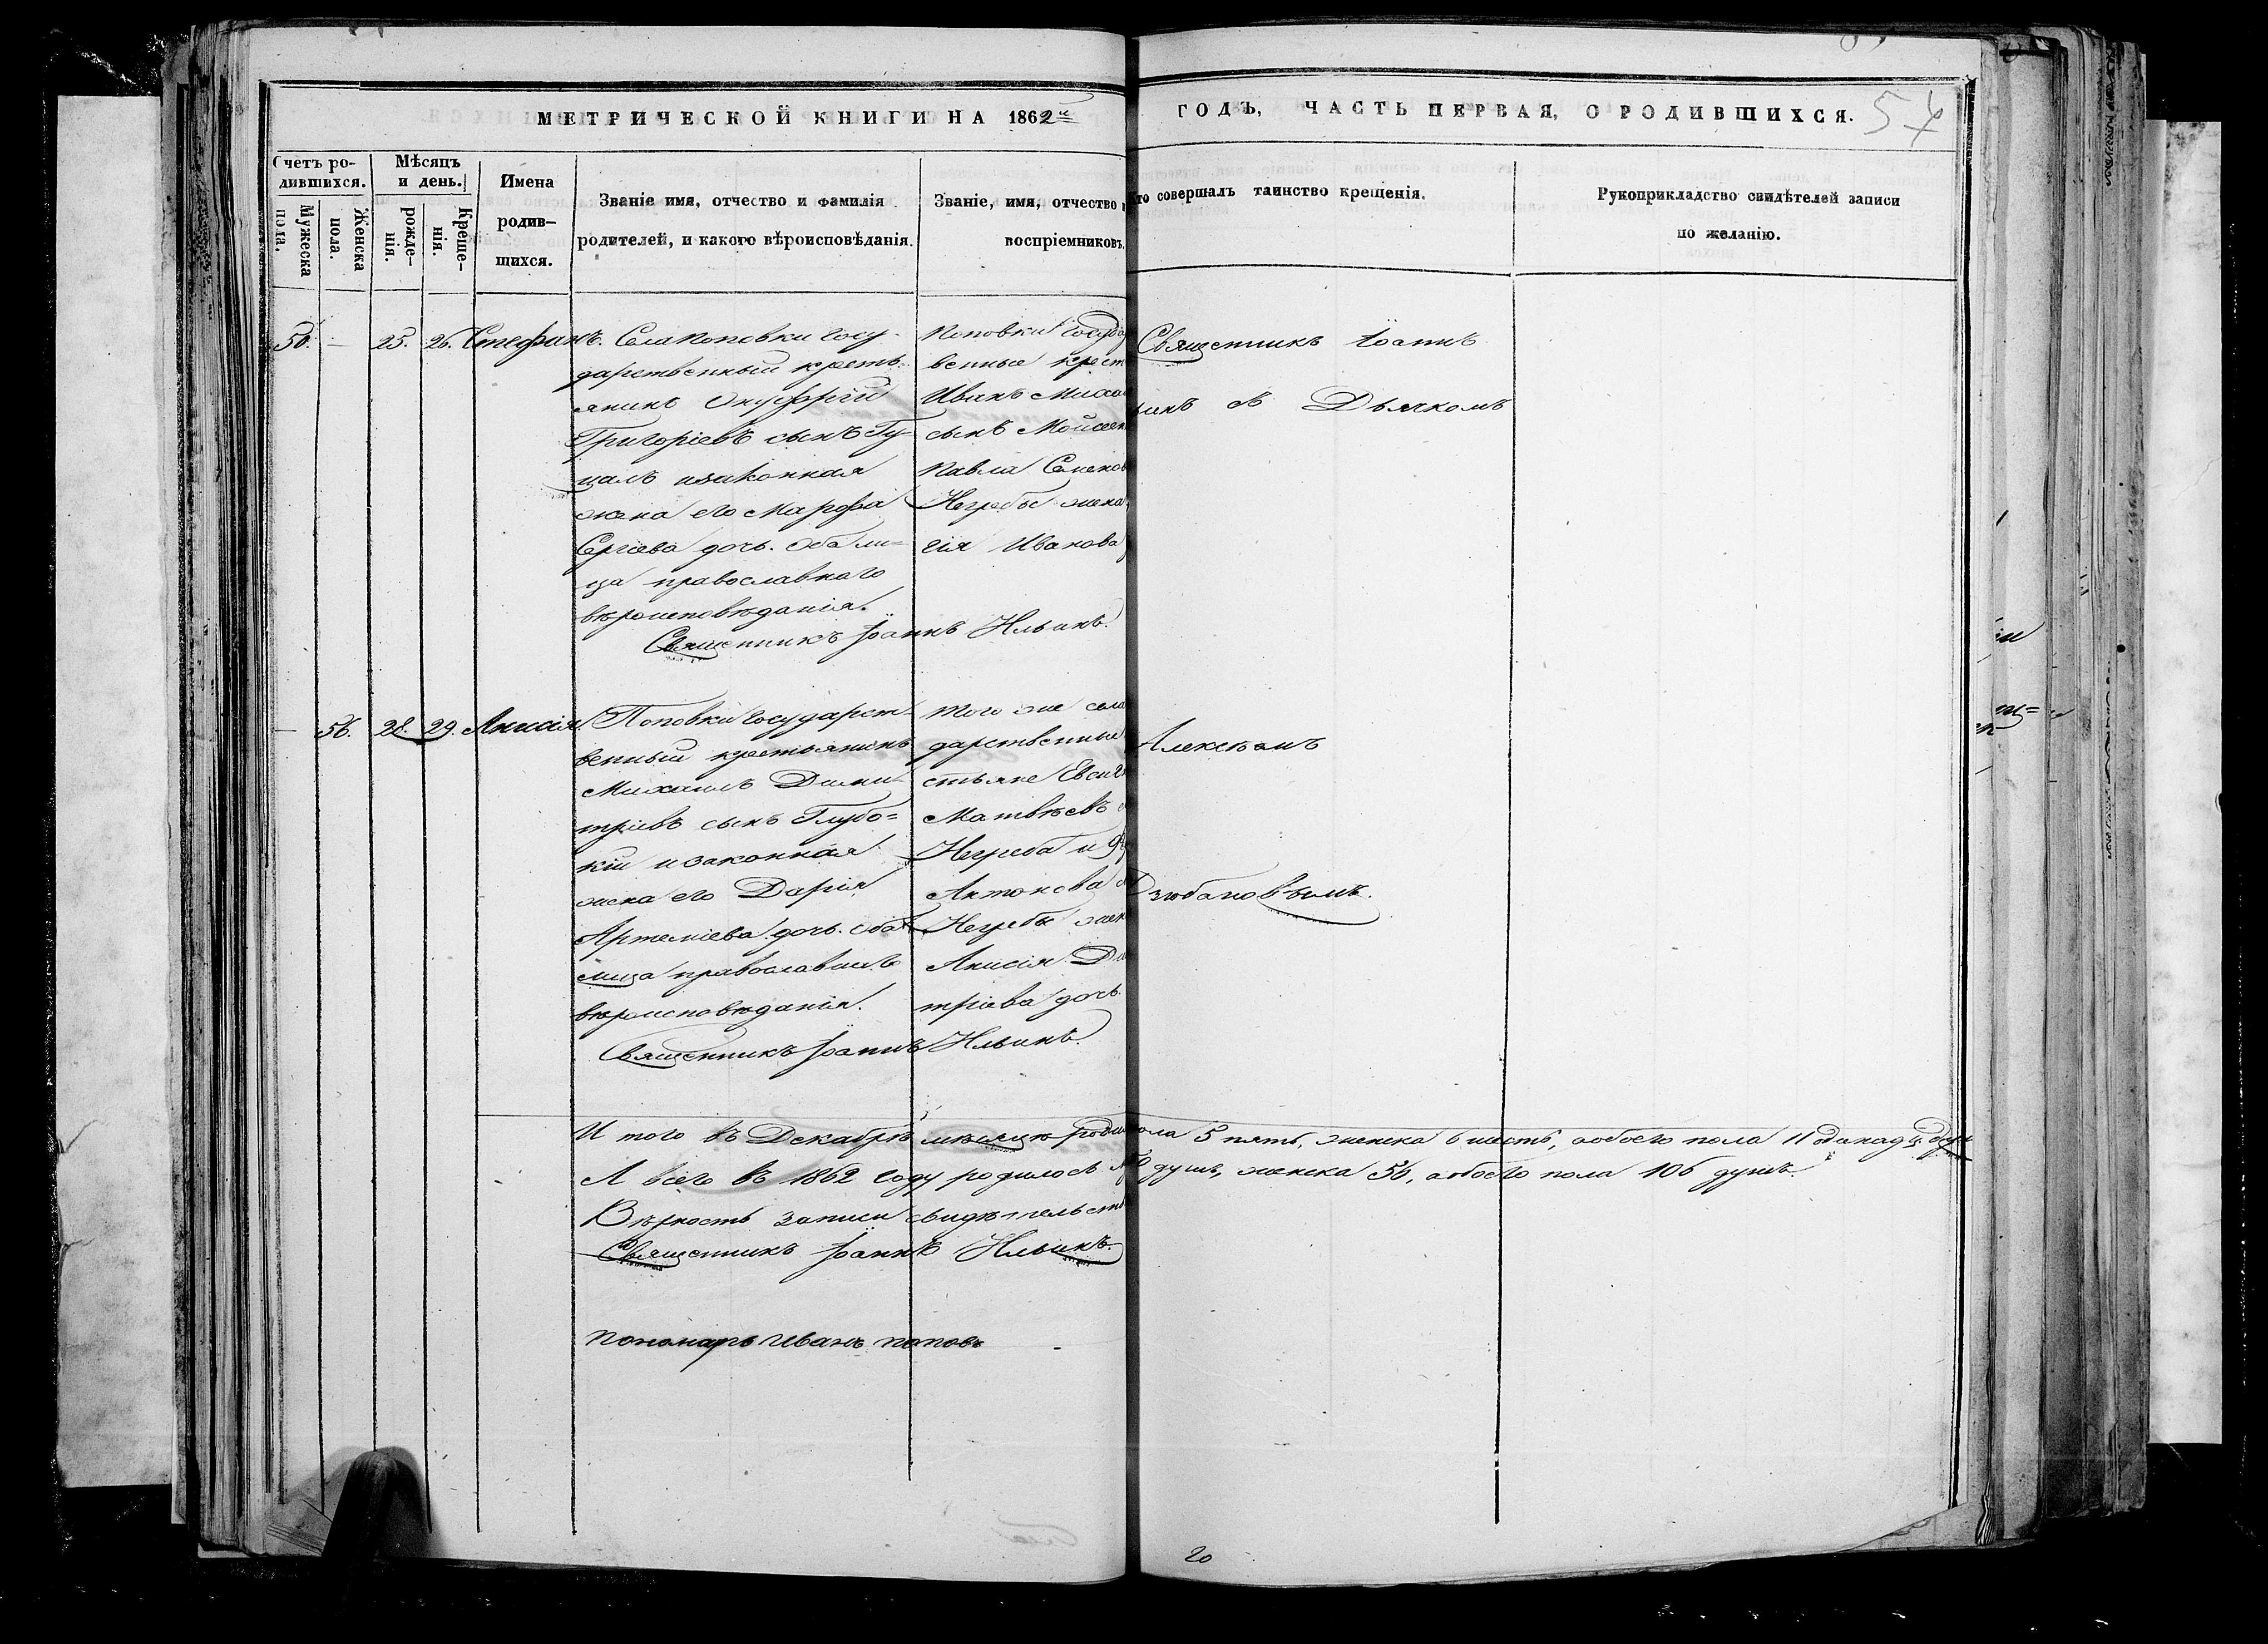 МЕТРИЧЕСКОЙ КНИГИ НА 1862й ГОДЪ, ЧАСТЬ ПЕРВАЯ, О РОДИВШИХСЯ.
57
Счетъ ро-
дившихся.
Мужеска
пола.
Женска
пола.
Мѣсяцъ
и день.
рожде-
нія.
Креще-
нія.
Имена
родив-
шихся.
Званіе имя, отчество и фамилія
родителей, и какого вѣроисповѣданія.
Званіе, имя, отчество
воспріемниковъ.
Кто совершалъ таинство крещенія.
Рукоприкладство свидѣтелей записи
по желанію.
50. - 25. 26. Стефанъ.
Села Поповки Госу-
дарственный кресть-
янинъ Онуфрій
Григоріевъ сынъ Гу-
цалъ изаконная
жена его Марфа
Сергіева дочь. Оба ли-
ца православнаго
вѣроисповѣданія.
Поповки Государ
венные крест
Иванъ Миха
сынъ Мойсеен
Павла Семенов
Негребы жена
гія Иванова
Священникъ Іоаннъ Ильинъ.
Священникъ Іоаннъ
инъ съ Дьячкомъ
- 56. 28. 29. Анисія.
Поповки Государст-
венный крестьянинъ
Михаилъ Дими-
тріевъ сынъ Глубо-
кій изаконная
жена его Дарія
Артеміева дочь. оба
лица православнаго
вѣроисповѣданія.
того же села
дарственные
стьяне Евсигн
Матвѣевъ
Негреба и
Антонова
Негребы жен
Анисія Ди
тріева дочь.
Священникъ Іоаннъ Ильинъ.
Алексѣемъ
Дзюбановымъ.
И того въ Декабрѣ мѣсяцѣ роди пола 5 пять, женска 6 шесть, аобоего пола 11 одинадц. душ
А всего въ 1862 году родилось 50 душъ, женска 56, аобоего пола 106 душъ.
Вѣрность записи свидѣтельств
Священникъ Іоаннъ Ильинъ.
Пономарь Иванъ Поповъ
20